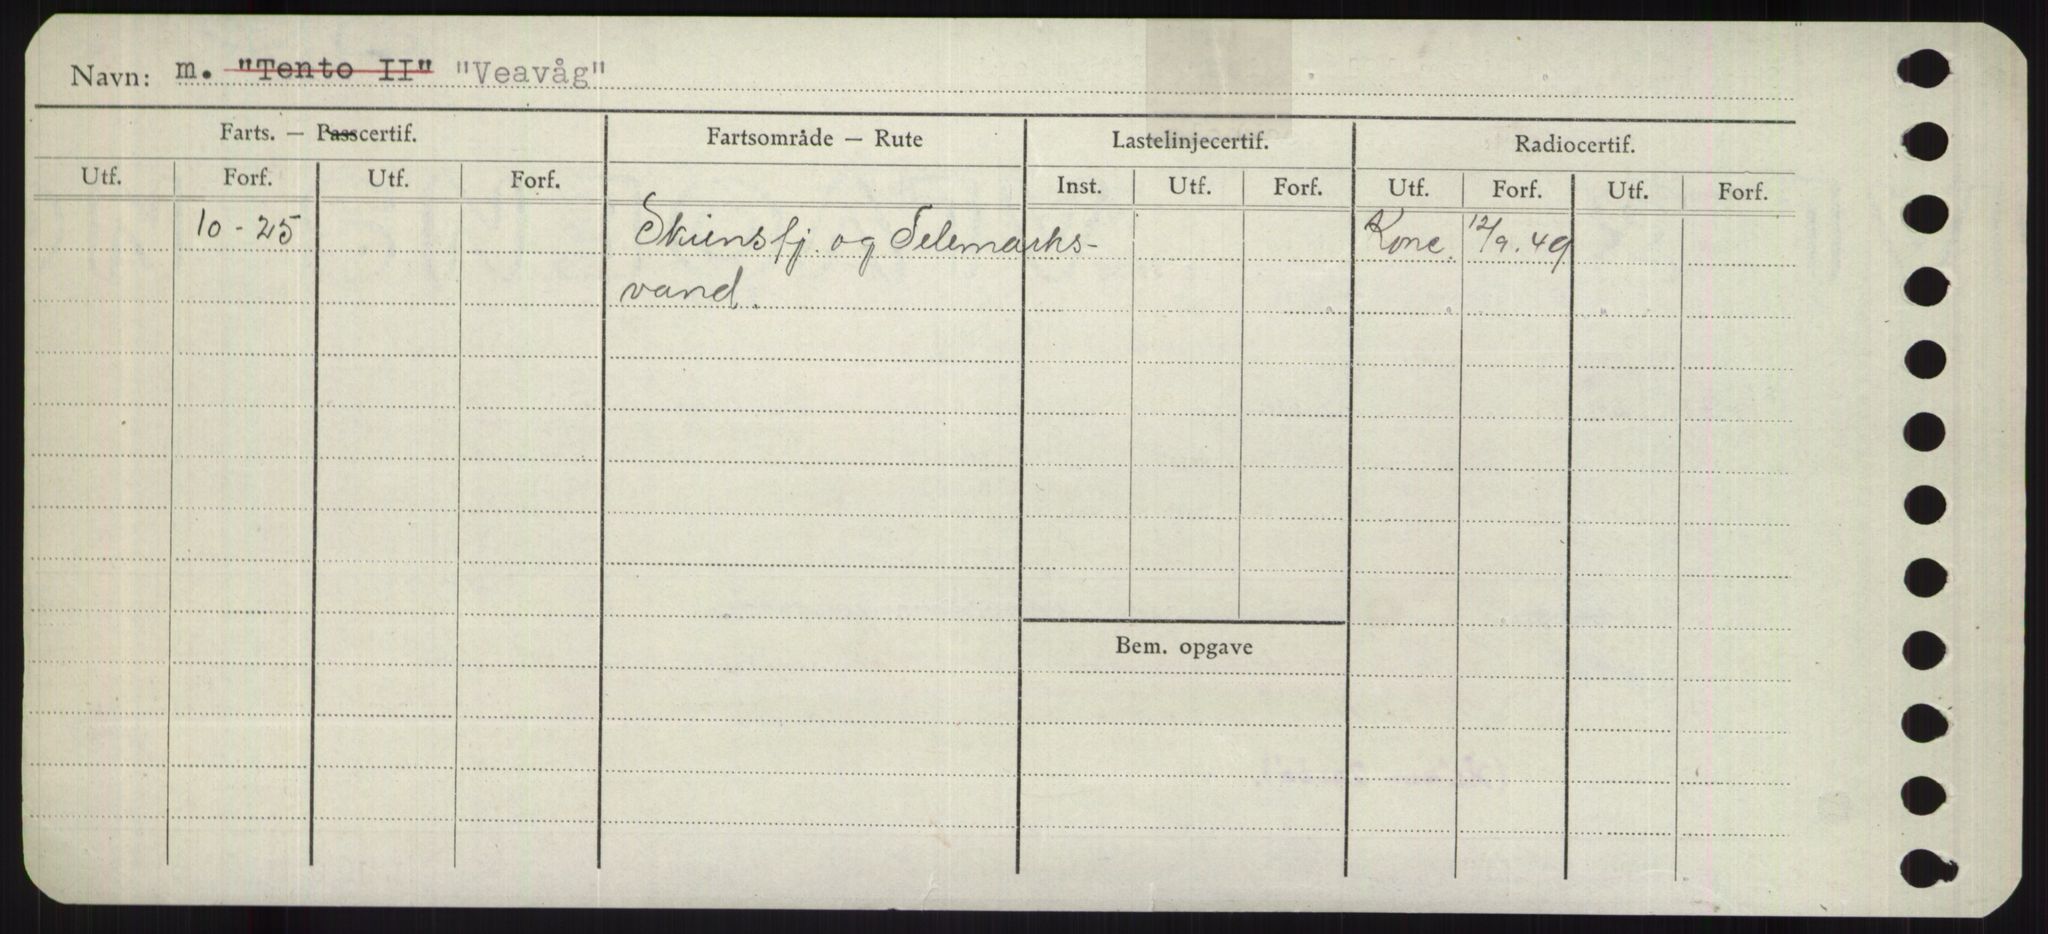 Navn: m. "Tento II" "Veavåg"
Farts. — Passcertif. Fartsområde — Rute Lastelinjecertif. Radiocertif.
Utf. Forf. Utf. Forf. Inst. Utf. Forf. Utf. Forf. Utf. Forf.
10 - 25 Skiensfj. og Telemarks- Konc. 12/9.49
vand.
Bem. opgave